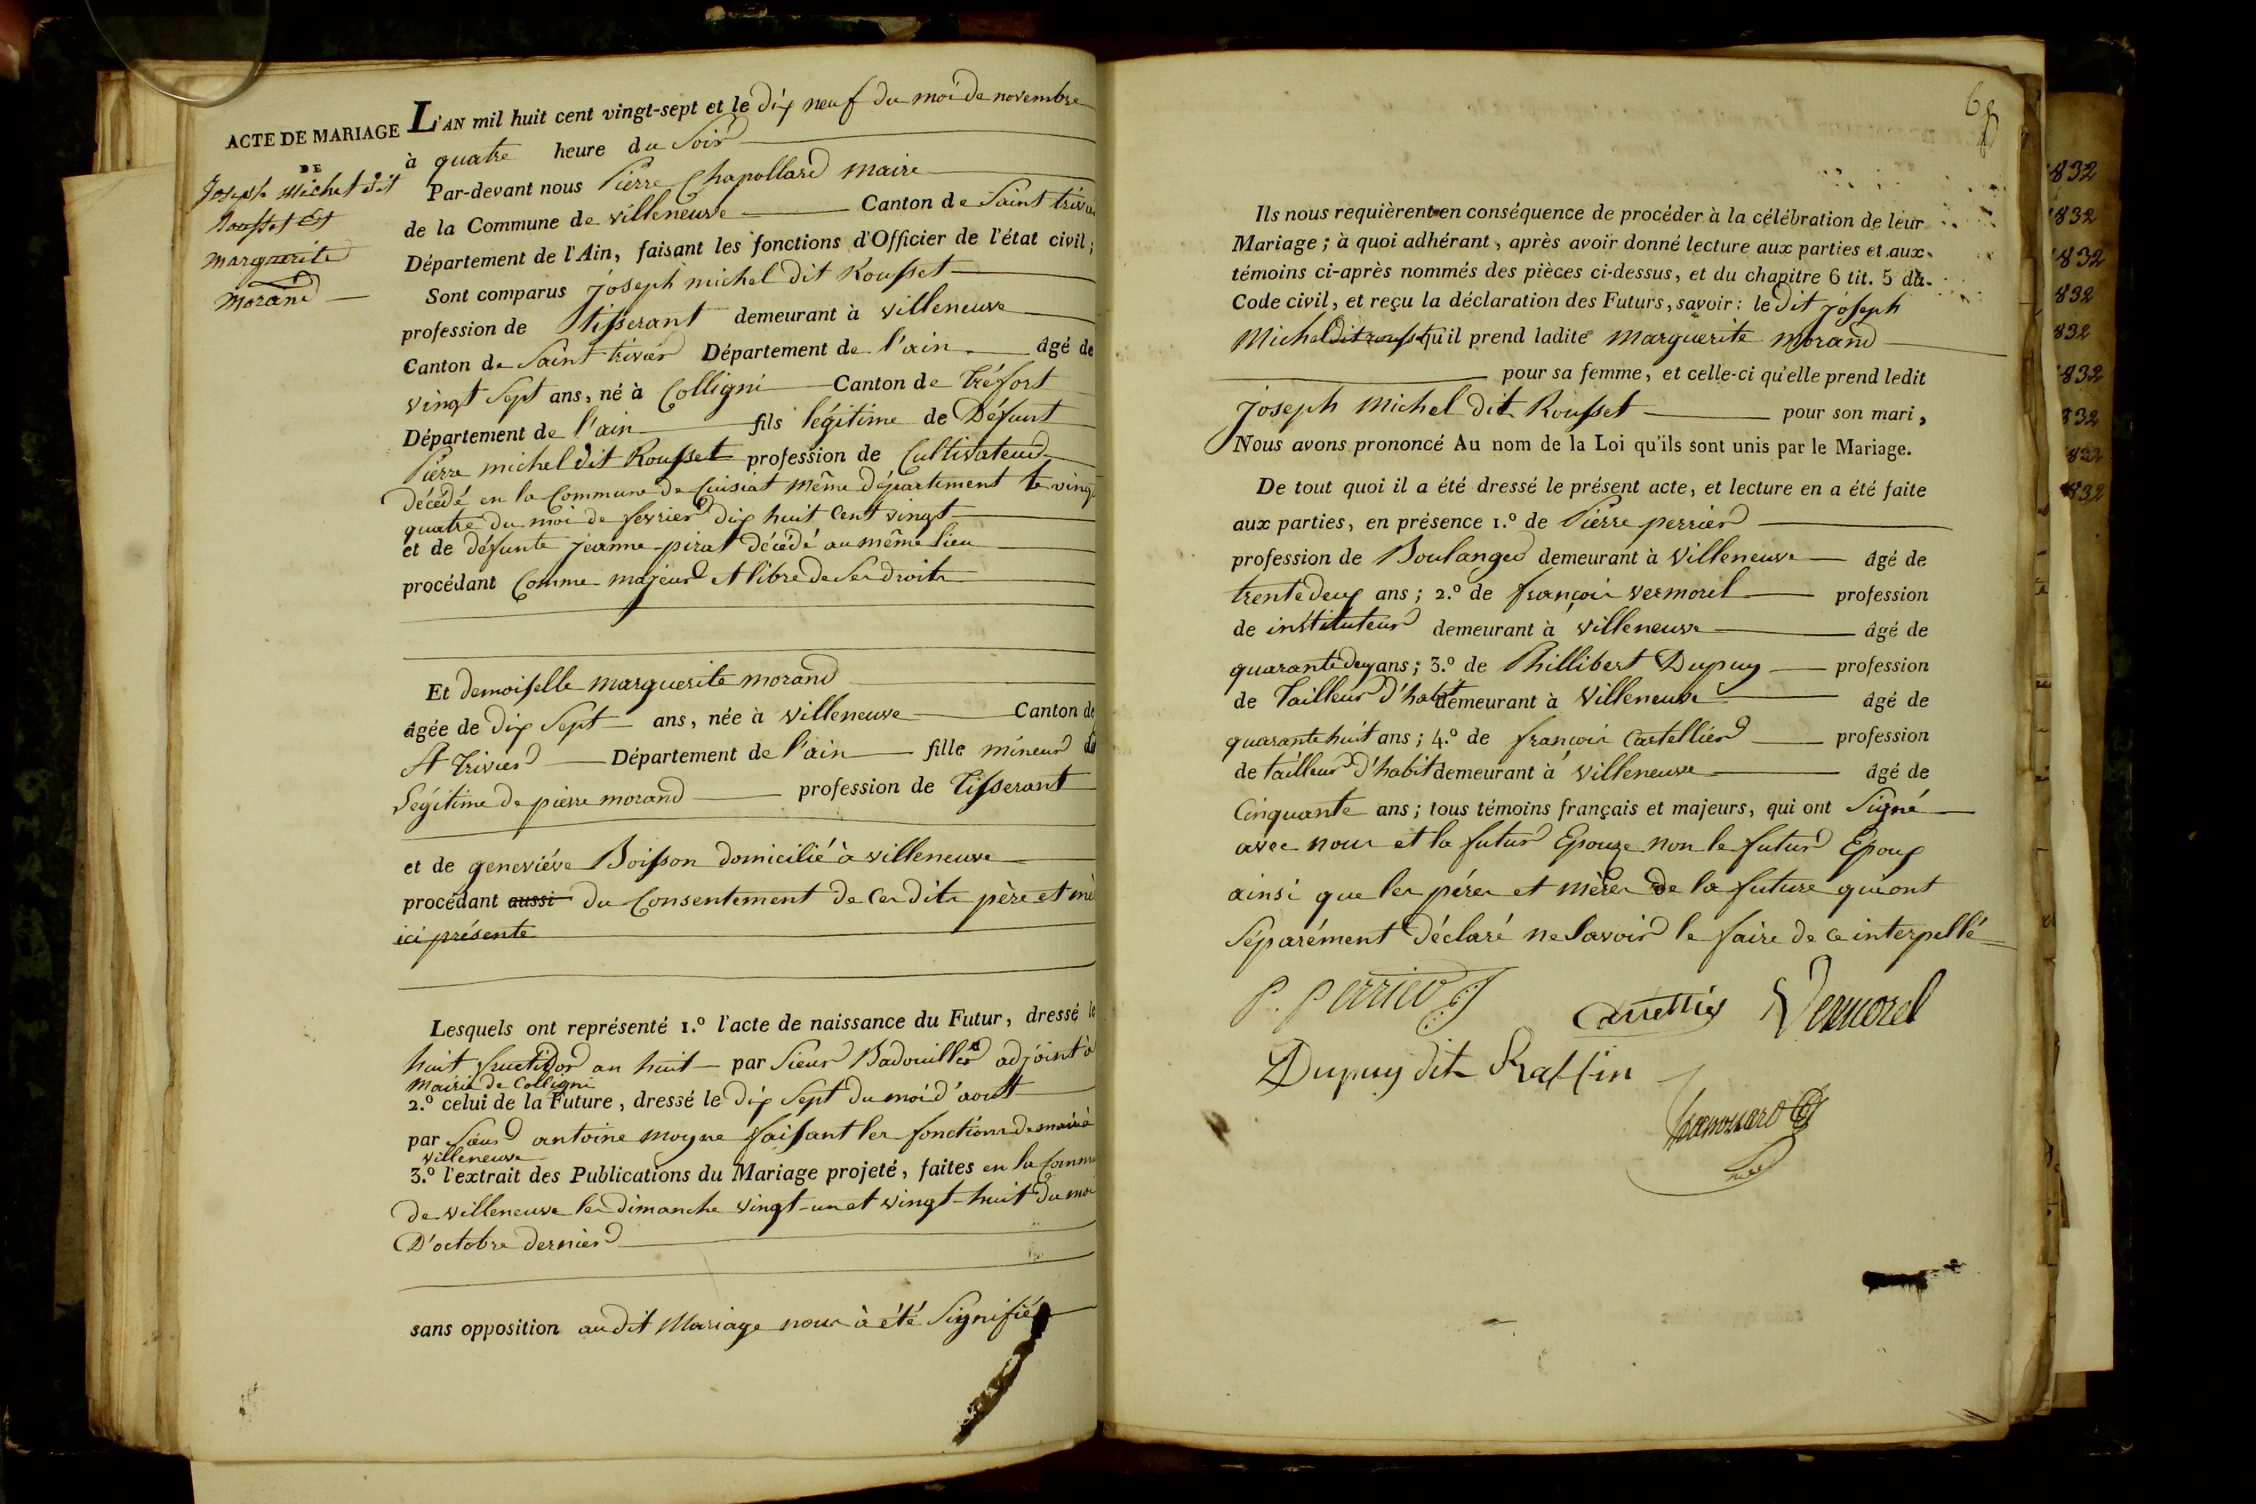 ACTE DE MARIAGE
DE
Joseph Michel dit
Rousset Et
Marguerite
Morand
L'AN mil huit cent vingt-sept et le dix neuf du moi de novembre
à quatre heure du Soir
Par-devant nous Pierre Chapollard maire
de la Commune de villeneuve Canton de Saint trivier
Département de l'Ain, faisant les fonctions d'Officier de l'état civil ;
Sont comparus joseph michel dit Rousset
profession de tisserant demeurant à villeneuve
Canton de Saint trivier Département de l'ain âgé de
vingt Sept ans, né à Colligni Canton de tréfort
Département de l'ain fils légitime de Défunt
Pierre michel dit Rousset profession de Cultivateur
décédé en la Commune de Cuisiat même département le vingt
quatre du moi de fevrier dix huit cent vingt
et de défunte jeanne pirat décédé au même lieu
procédant Comme majeur et libre de Ses droits
Et demoiselle marguerite morand
âgée de dix Sept ans, née à villeneuve Canton de
St trivier Département de l'ain fille mineur de
Légitime de pierre morand profession de tisserant
et de geneviéve Boisson domicilié à villeneuve
procédant aussi du Consentement de Ces dits père et mè
ici présente
Lesquels ont représenté 1.º l'acte de naissance du Futur, dressé le
huit fructidor an huit par Sieur Badouiller adjoint à
mairie de Colligni
2.º celui de la Future, dressé le dix Sept du moi d'aout
par Sieur antoine moyne faisant les fonctions de maire à
villeneuve
3.º l'extrait des Publications du Mariage projeté, faites en la Commu
de villeneuve les dimanche vingt-un et vingt-huit du moi
D'octobre dernier
sans opposition audit Mariage nous à été Signifiée
Ils nous requièrent en conséquence de procéder à la célébration de leur
Mariage ; à quoi adhérant, après avoir donné lecture aux parties et aux
témoins ci-après nommés des pièces ci-dessus, et du chapitre 6 tit. 5 du
Code civil, et reçu la déclaration des Futurs, savoir : le dit joseph
Michel dit rousset qu'il prend ladite marguerite morand
pour sa femme, et celle-ci qu'elle prend ledit
joseph michel dit Rousset pour son mari,
Nous avons prononcé Au nom de la Loi qu'ils sont unis par le Mariage.
De tout quoi il a été dressé le présent acte, et lecture en a été faite
aux parties, en présence 1.º de Pierre perrier
profession de Boulanger demeurant à villeneuve âgé de
trente deux ans ; 2.º de françois vermorel profession
de instituteur demeurant à villeneuve âgé de
quarante deux ans ; 3.º de Phillibert Dupuy profession
de Tailleur d'habit demeurant à villeneuve âgé de
quarante huit ans ; 4.º de françois Castellier profession
de tailleur d'habit demeurant à villeneuve âgé de
Cinquante ans ; tous témoins français et majeurs, qui ont Signé
avec nous et la futur Epouze non le futur Epoux
ainsi que les pères et mères de la future qui ont
Séparément déclaré ne Savoir le faire de ce interpellé
P. perrier
Vermorel
Dupuy dit Raffin
832
832
832
832
832
832
832
832
832